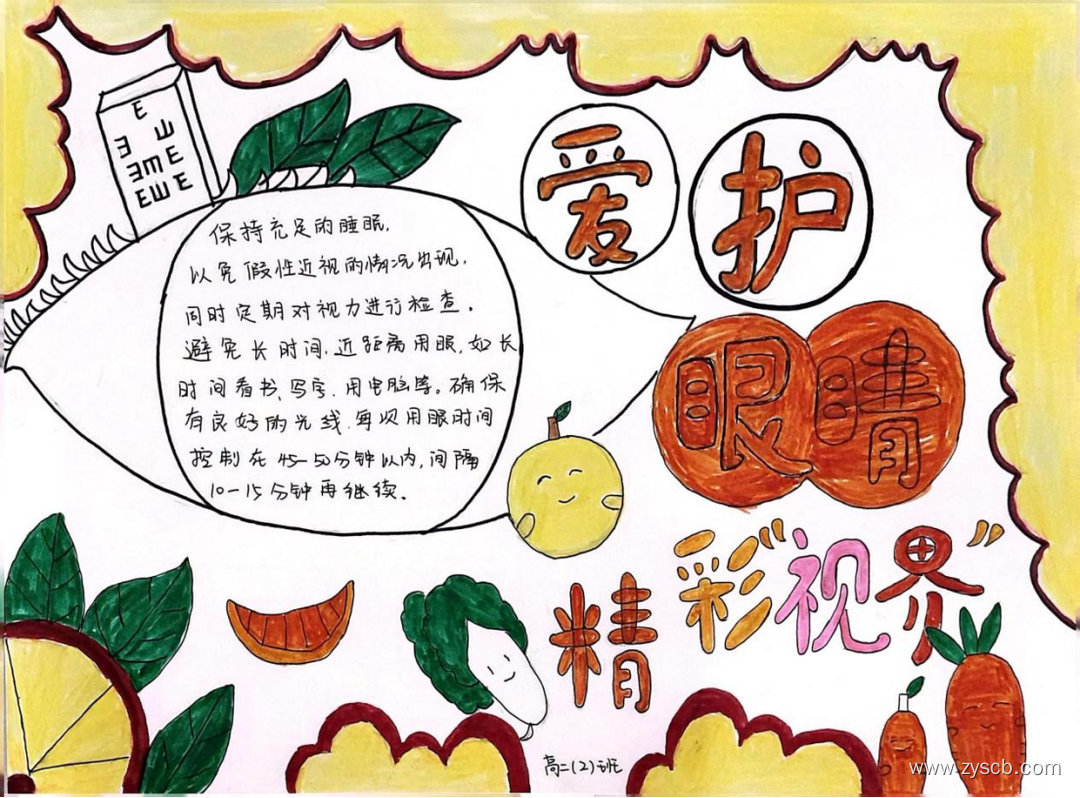 E
E Ш
Ǝ M E
E Ш E
爱护
眼睛
精彩“视界”
保持充足的睡眠,
以免假性近视的情况出现,
同时定期对视力进行检查。
避免长时间、近距离用眼,如长
时间看书、写字、用电脑等。确保
有良好的光线,每次用眼时间
控制在45-50分钟以内,间隔
10-15分钟再继续。
高二(2)班
www.zyscb.com